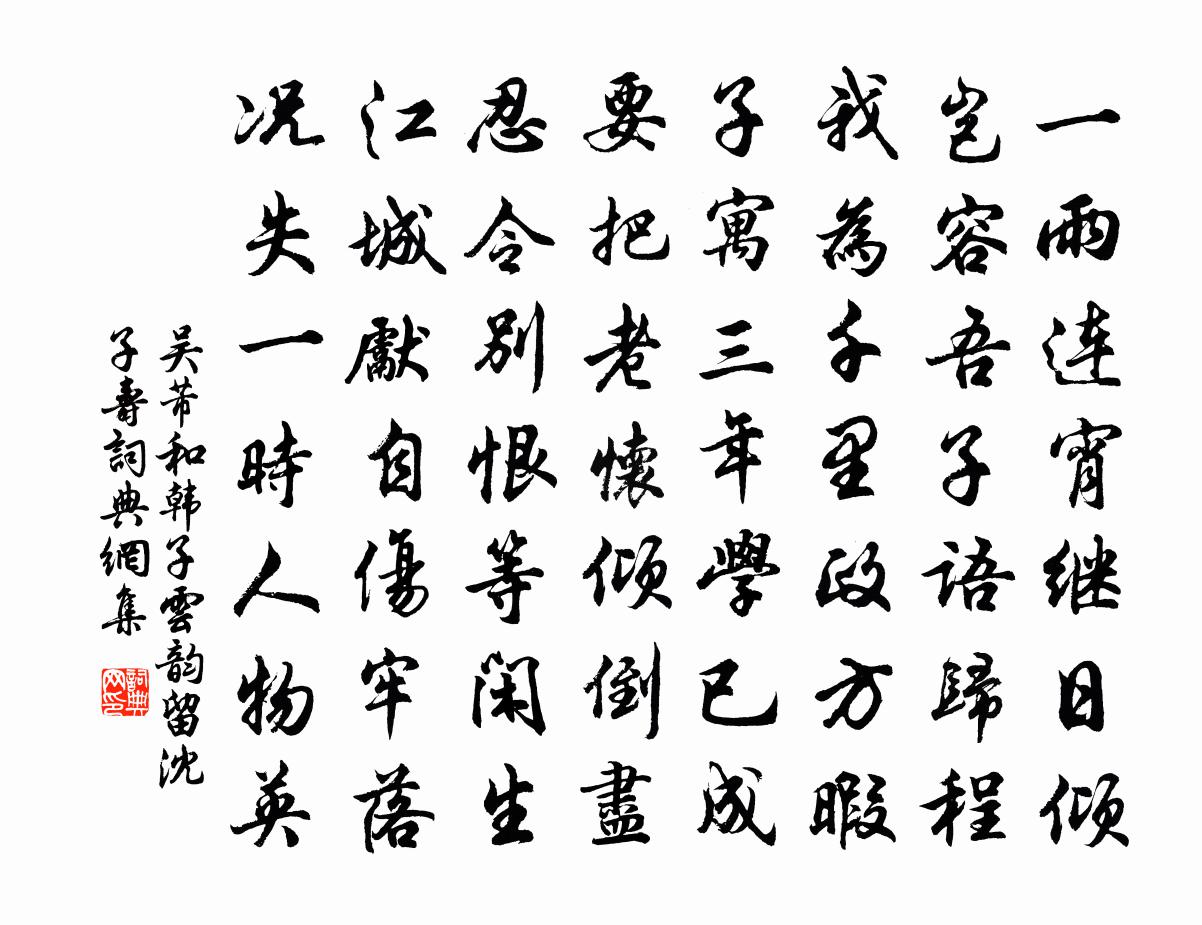 一雨连宵继日倾
岂容吾子语歸程
我為千里政方暇
子寓三年學已成
要把老懷倾倒盡
忍令别恨等閑生
江城獻自傷牢落
况失一時人物英
吴芾和韩子雲韵留沈
子壽詞典網集
詞典网印